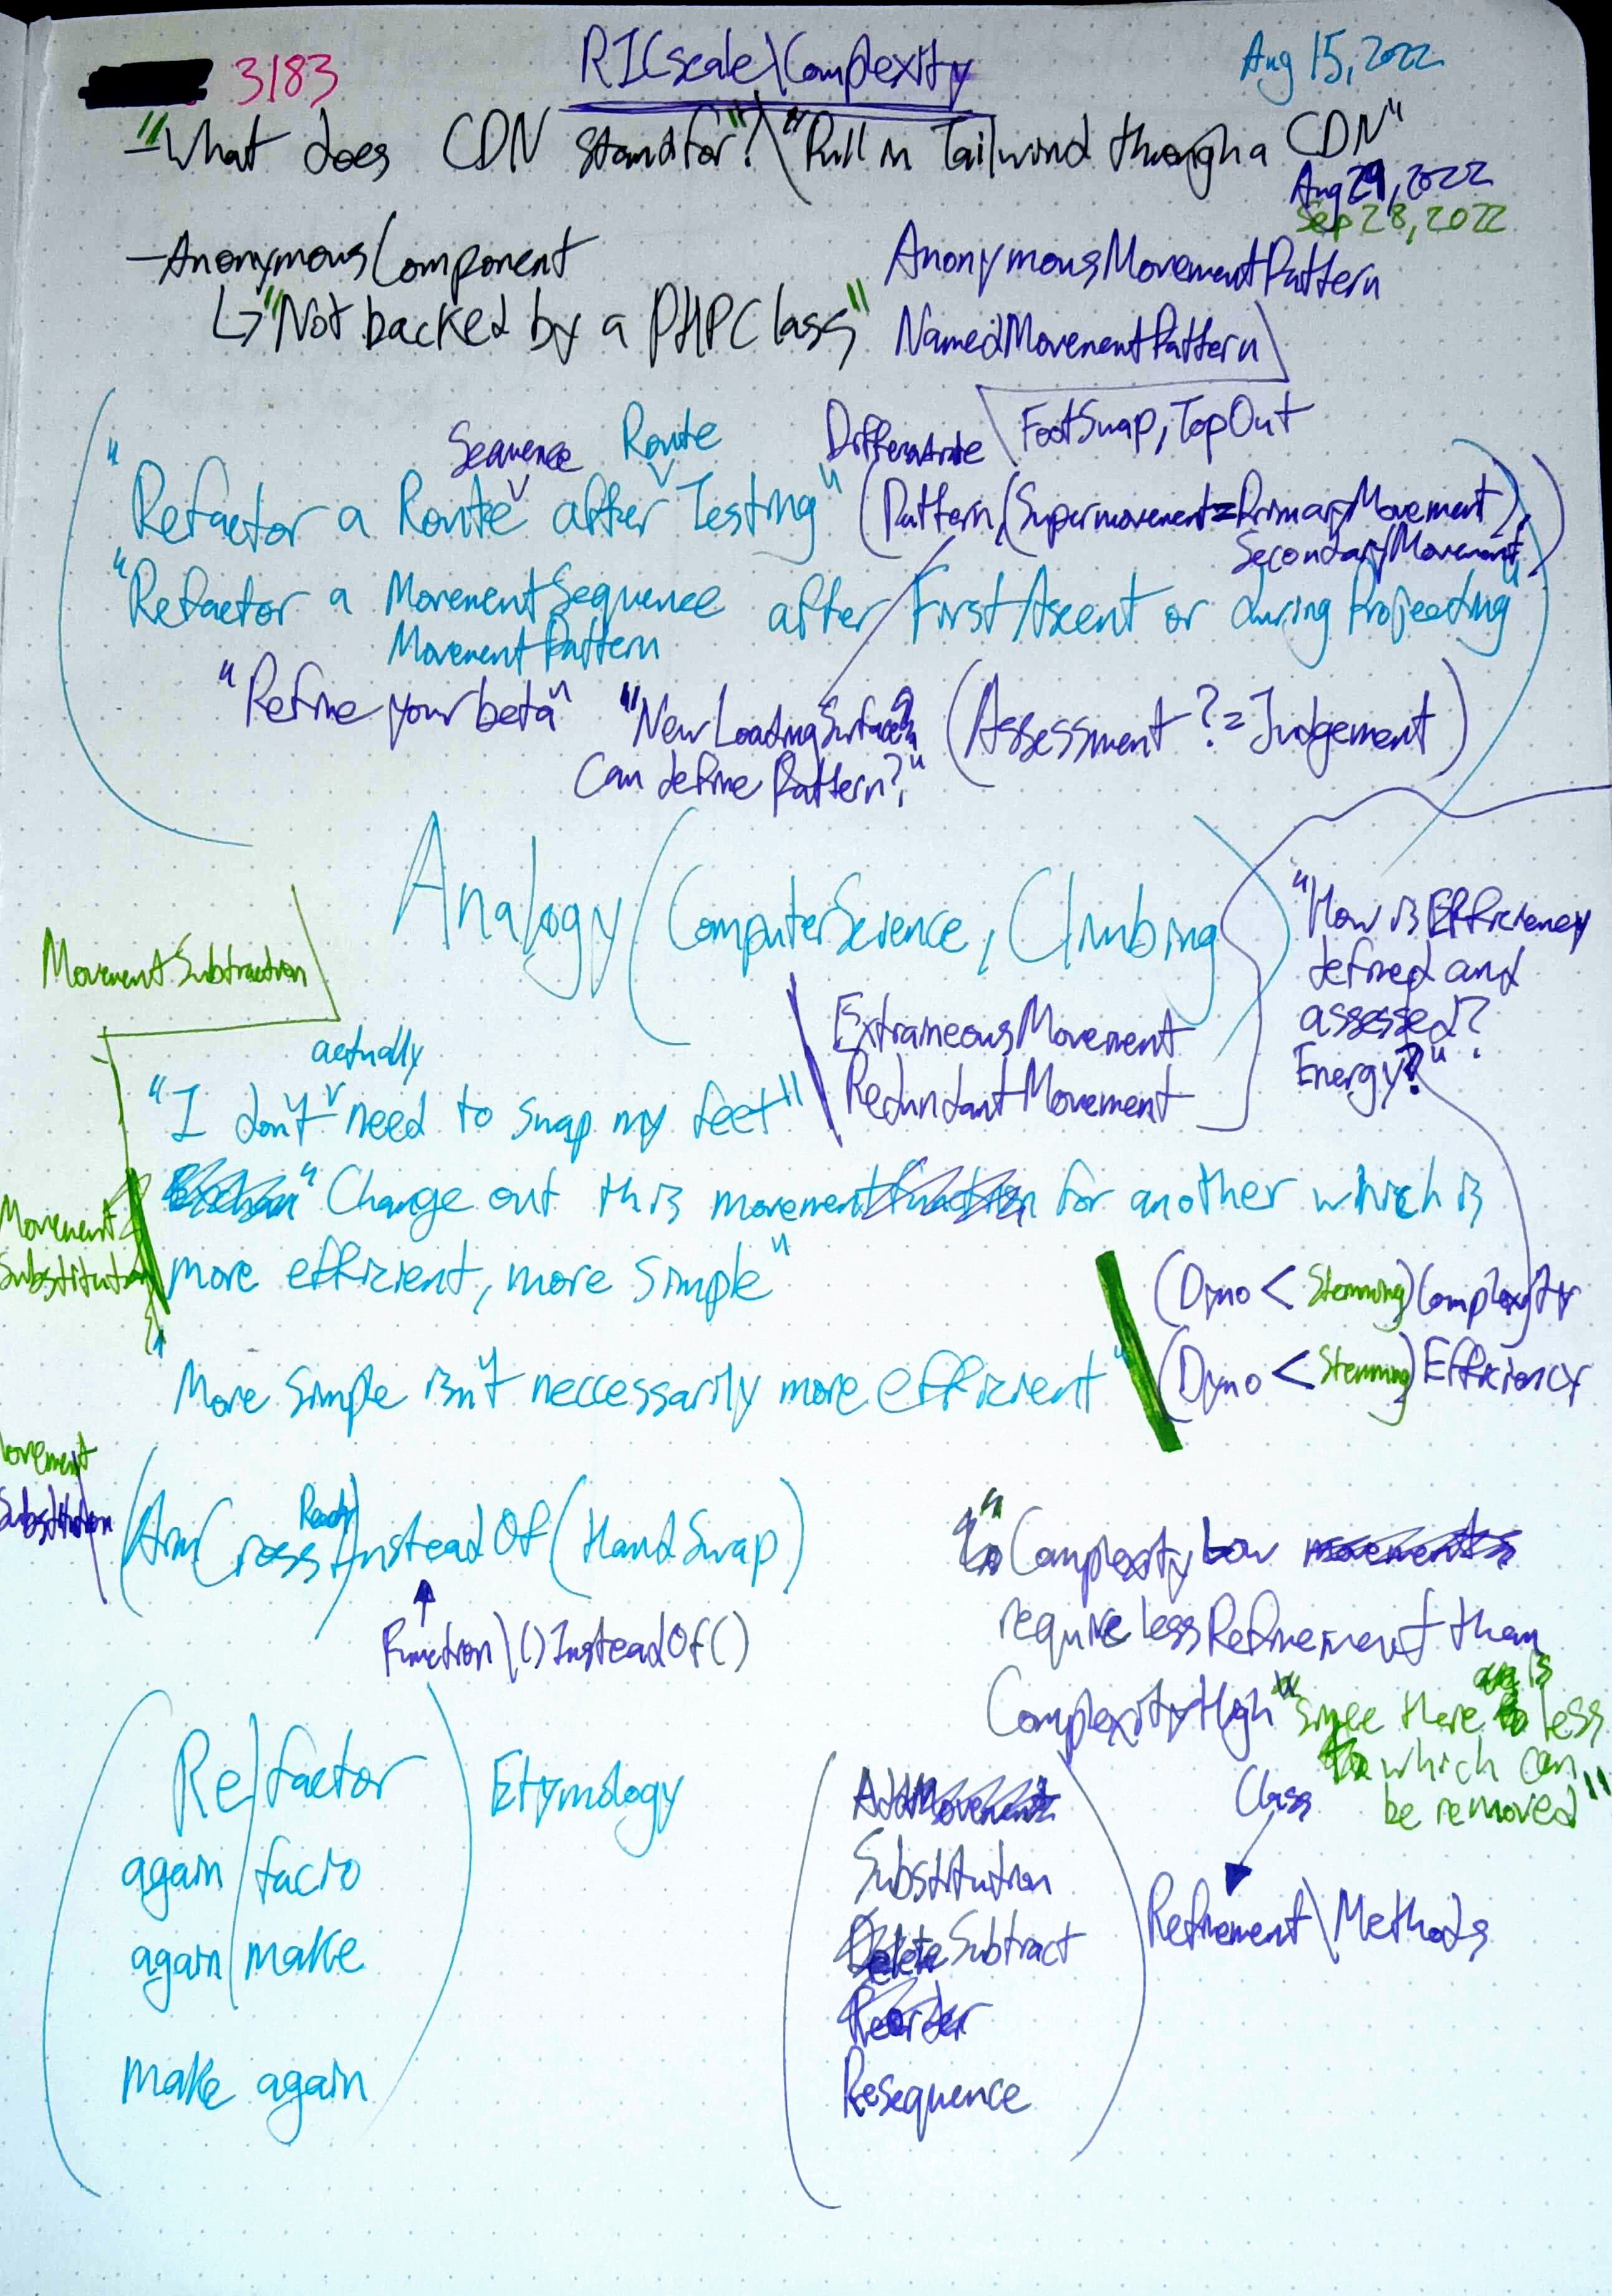 3183
RICscale\Complexity
Aug 15, 2022
—"What does CDN stand for"? \ "Pull in Tailwind through a CDN"
Aug 29, 2022
Sep 28, 2022
—AnonymousComponent
AnonymousMovementPattern
↳"Not backed by a PHPClass"
NamedMovementPattern
FootSwap, TopOut
Sequence Route
Differentiate
"Refactor a Route after Testing"
(Pattern, (Supermovement=PrimaryMovement), SecondaryMovement)
"Refactor a MovementSequence after FirstAscent or during Projecting"
MovementPattern
"Refine your beta"
"NewLoadingSurface?
Can define Pattern?"
(Assessment ?= Judgement)
Analogy(ComputerScience, Climbing)
"How is Efficiency
defined and
assessed?
Energy?"
MovementSubtraction
ExtraneousMovement
RedundantMovement
actually
"I don't need to swap my feet"
Movement
Substitution
"Change out this movement for another which is
more efficient, more simple"
(Dyno < Stemming)Complexity
(Dyno < Stemming)Efficiency
"More simple isn't neccessarily more efficient"
Movement
Substitution
(ArmCross Ready)InsteadOf(HandSwap)
Function\()InsteadOf()
"ComplexityLow movements
require less Refinement than
ComplexityHigh" "since there is less
which can
be removed"
Re/factor
Etymology
again/facio
again/make
make again
AddMovement
Substitution
Delete Subtract
Reorder
Resequence
Class
Refinement\Methods